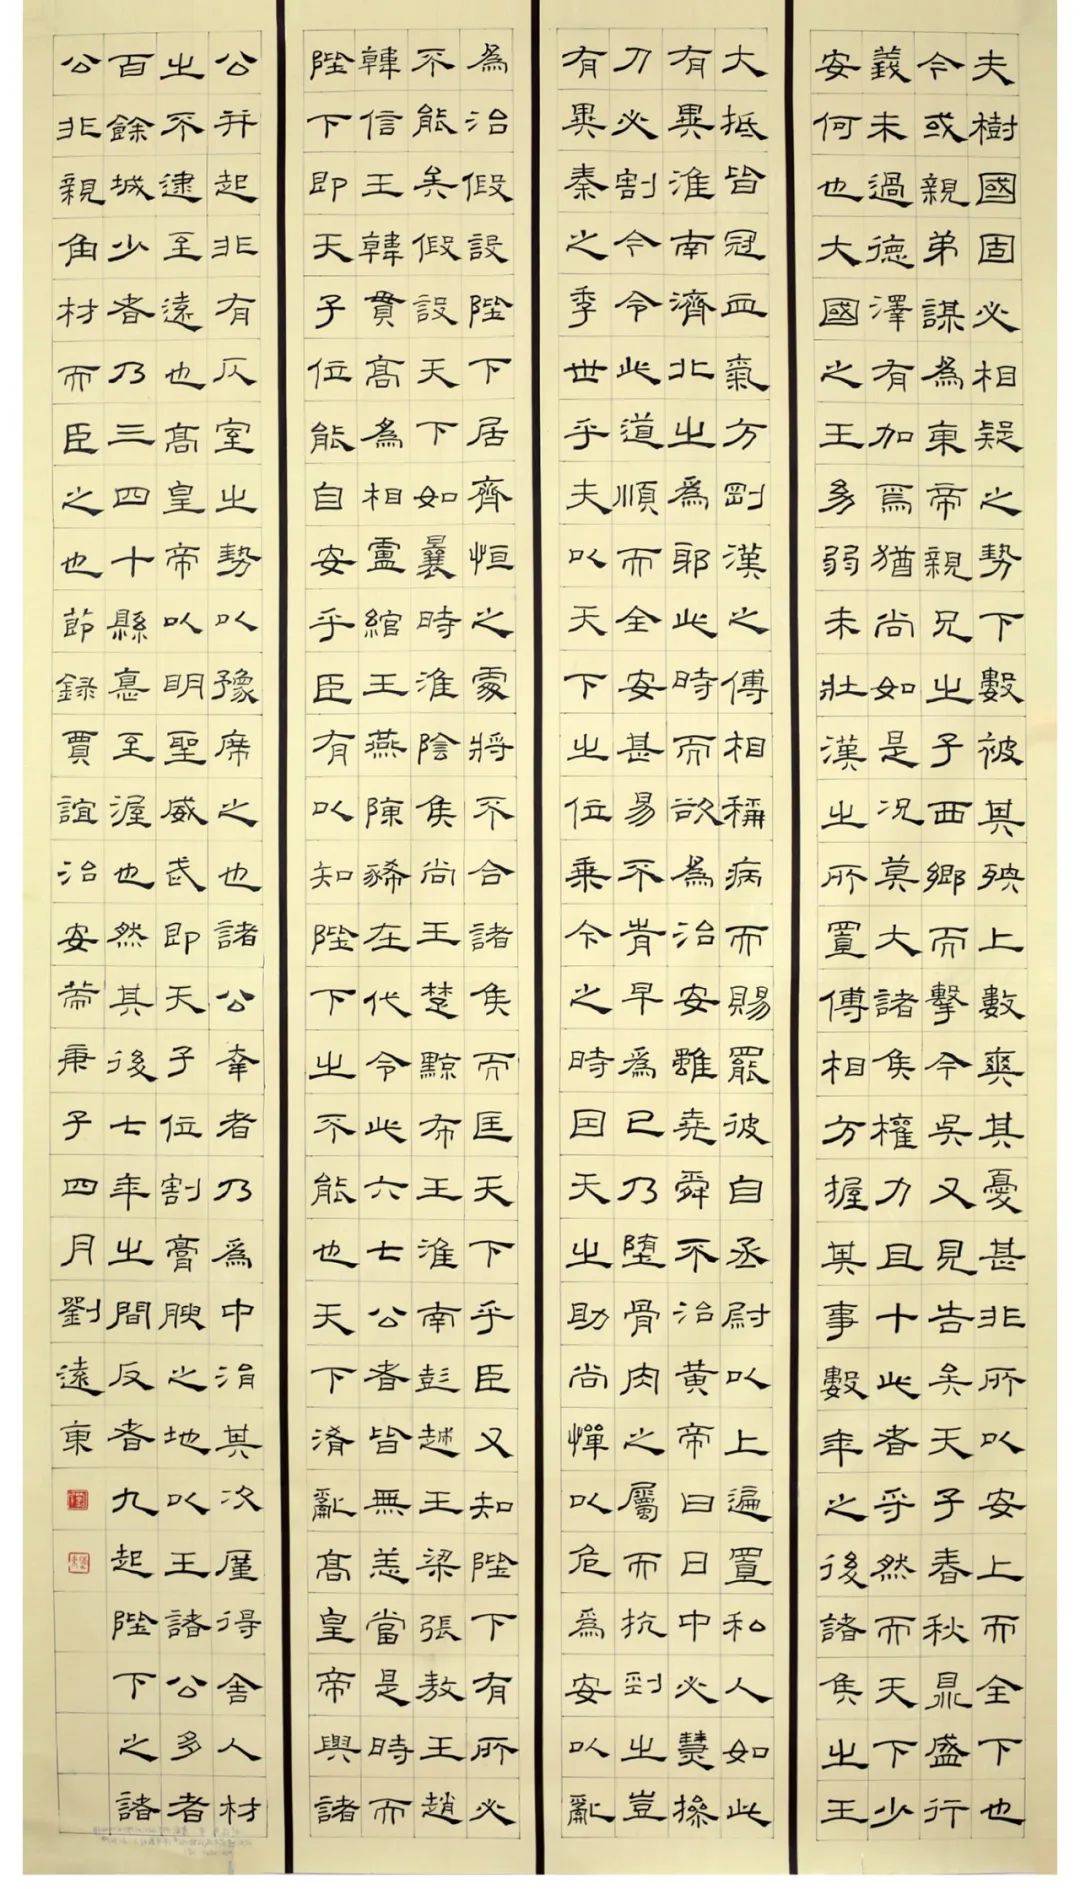 夫樹國固必相疑之勢下數被其殃上數爽其憂甚非所以安上而全下也
今或親弟謀為東帝親兄之子西鄉而擊今吳又見告矣天子春秋鼎盛行
義未過德澤有加焉猶尚如是況莫大諸侯權力且十此者乎然而天下少
安何也大國之王多弱未壯漢之所置傅相方握其事數年之後諸侯之王
大抵皆冠血氣方剛漢之傅相稱病而賜罷彼自丞尉以上遍置私人如此
有異淮南濟北之為耶此時而欲為治安雖堯舜不治黃帝曰日中必慧操
刀必割今令此道順而全安甚易不肯早為已乃墮骨肉之屬而抗剄之豈
有異秦之季世乎夫以天下之位乘今之時因天之助尚憚以危為安以亂
為治假設陛下居齊恒之處將不合諸侯而匡天下乎臣又知陛下有所必
不能矣假設天下如曩時淮陰侯尚王楚黥布王淮南彭越王梁張敖王趙
韓信王韓貫高為相盧綰王燕陳豨在代令此六七公者皆無恙當是時而
陛下即天子位能自安乎臣有以知陛下之不能也天下淆亂高皇帝與諸
公并起非有仄室之勢以豫席之也諸公幸者乃為中涓其次厪得舍人材
之不逮至遠也高皇帝以明聖威武即天子位割膏腴之地以王諸公多者
百餘城少者乃三四十縣惪至渥也然其後七年之間反者九起陛下之諸
公非親角材而臣之也節錄賈誼治安策庚子四月劉遠東